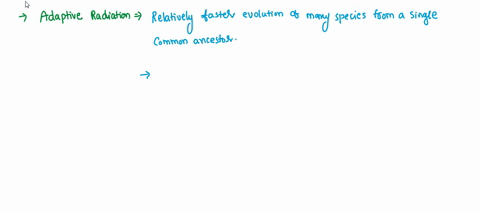 → Adaptive Radiation ⇒ Relatively faster evolution of many species from a single
Common ancestor.
→